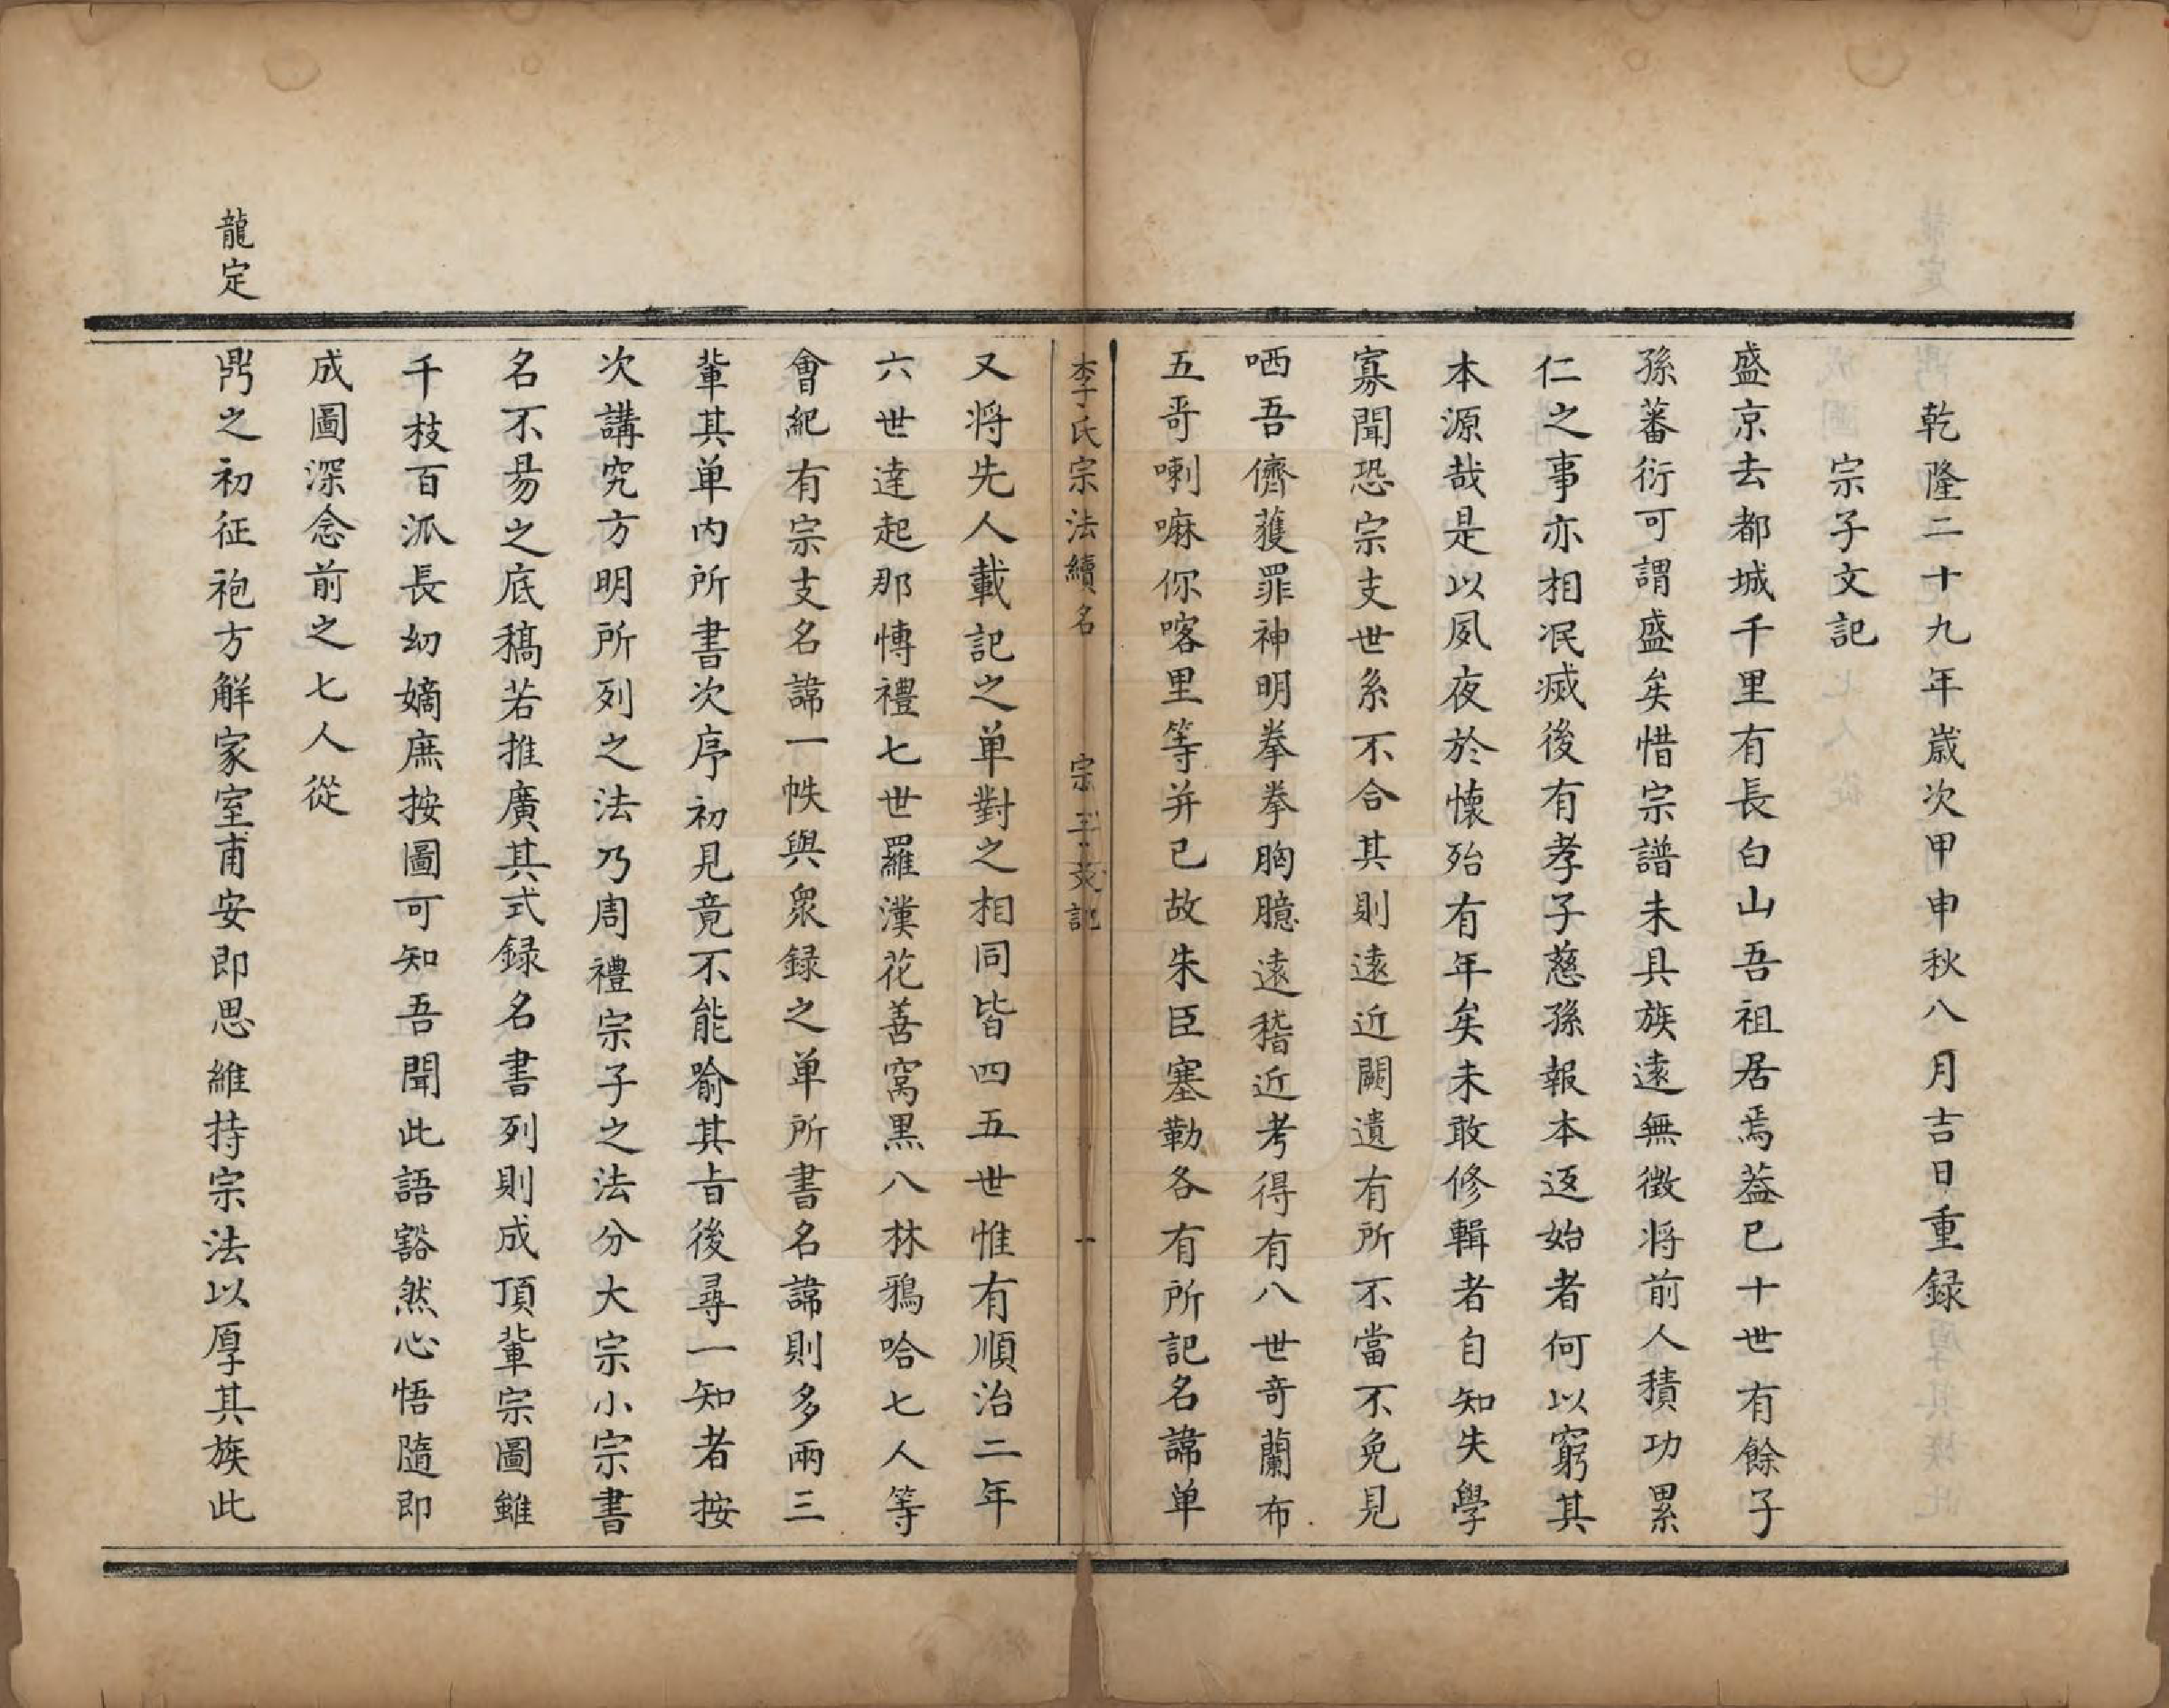 乾隆二十九年歲次甲申秋八月吉日重録
宗子文記
盛京去都城千里有長白山吾祖居焉葢已十世有餘子
孫蕃衍可謂盛矣惜宗譜未具族遠無徴將前人積功累
仁之事亦相泯滅後有孝子慈孫報本返始者何以窮其
本源哉是以夙夜於懷殆有年矣未敢修輯者自知失學
寡聞恐宗支世系不合其則遠近闕遺有所不當不免見
哂吾儕獲罪神明拳拳胸臆遠稽近考得有八世竒蘭布
五哥喇嘛你喀里等并已故朱臣塞勒各有所記名諱单
李氏宗法續名 宗子文記 一
又将先人載記之单對之相同皆四五世惟有順治二年
六世達起那慱禮七世羅漢花善窩黒八林鴉哈七人等
會紀有宗支名諱一帙與衆録之单所書名諱則多兩三
輩其单内所書次序初見竟不能喻其旨後尋一知者按
次講究方明所列之法乃周禮宗子之法分大宗小宗書
名不易之底稿若推廣其式録名書列則成頂輩宗圖雖
千枝百派長幼嫡庶按圖可知吾聞此語豁然心悟隨即
成圖深念前之七人從
龍定
鼎之初征袍方解家室甫安即思維持宗法以厚其族此